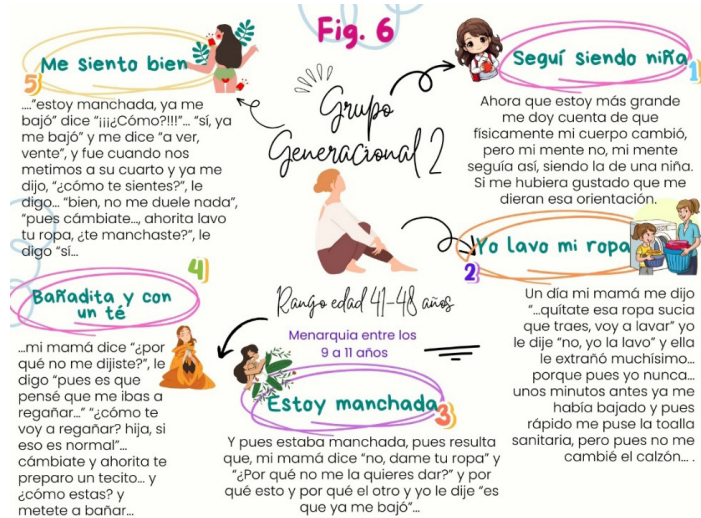 Fig. 6
Grupo
Generacional 2
Rango edad 41-48 años
Menarquia entre los
9 a 11 años
Seguí siendo niña
1
Ahora que estoy más grande
me doy cuenta de que
físicamente mi cuerpo cambió,
pero mi mente no, mi mente
seguía así, siendo la de una niña.
Si me hubiera gustado que me
dieran esa orientación.
Yo lavo mi ropa
2
Un día mi mamá me dijo
“...quítate esa ropa sucia
que traes, voy a lavar” yo
le dije “no, yo la lavo” y ella
le extrañó muchísimo...
porque pues yo nunca...
unos minutos antes ya me
había bajado y pues
rápido me puse la toalla
sanitaria, pero pues no me
cambié el calzón... .
Estoy manchada
3
Y pues estaba manchada, pues resulta
que, mi mamá dice “no, dame tu ropa” y
“¿Por qué no me la quieres dar?” y por
qué esto y por qué el otro y yo le dije “es
que ya me bajó”...
4
Bañadita y con
un té
...mi mamá dice “¿por
qué no me dijiste?”, le
digo “pues es que
pensé que me ibas a
regañar...” “¿cómo te
voy a regañar? hija, si
eso es normal”...
cámbiate y ahorita te
preparo un tecito... y
¿cómo estas? y
metete a bañar...
5
Me siento bien
....”estoy manchada, ya me
bajó” dice “¡¡¡¿Cómo?!!!”... “sí, ya
me bajó” y me dice “a ver,
vente”, y fue cuando nos
metimos a su cuarto y ya me
dijo, “¿cómo te sientes?”, le
digo... “bien, no me duele nada”,
“pues cámbiate..., ahorita lavo
tu ropa, ¿te manchaste?”, le
digo “sí...